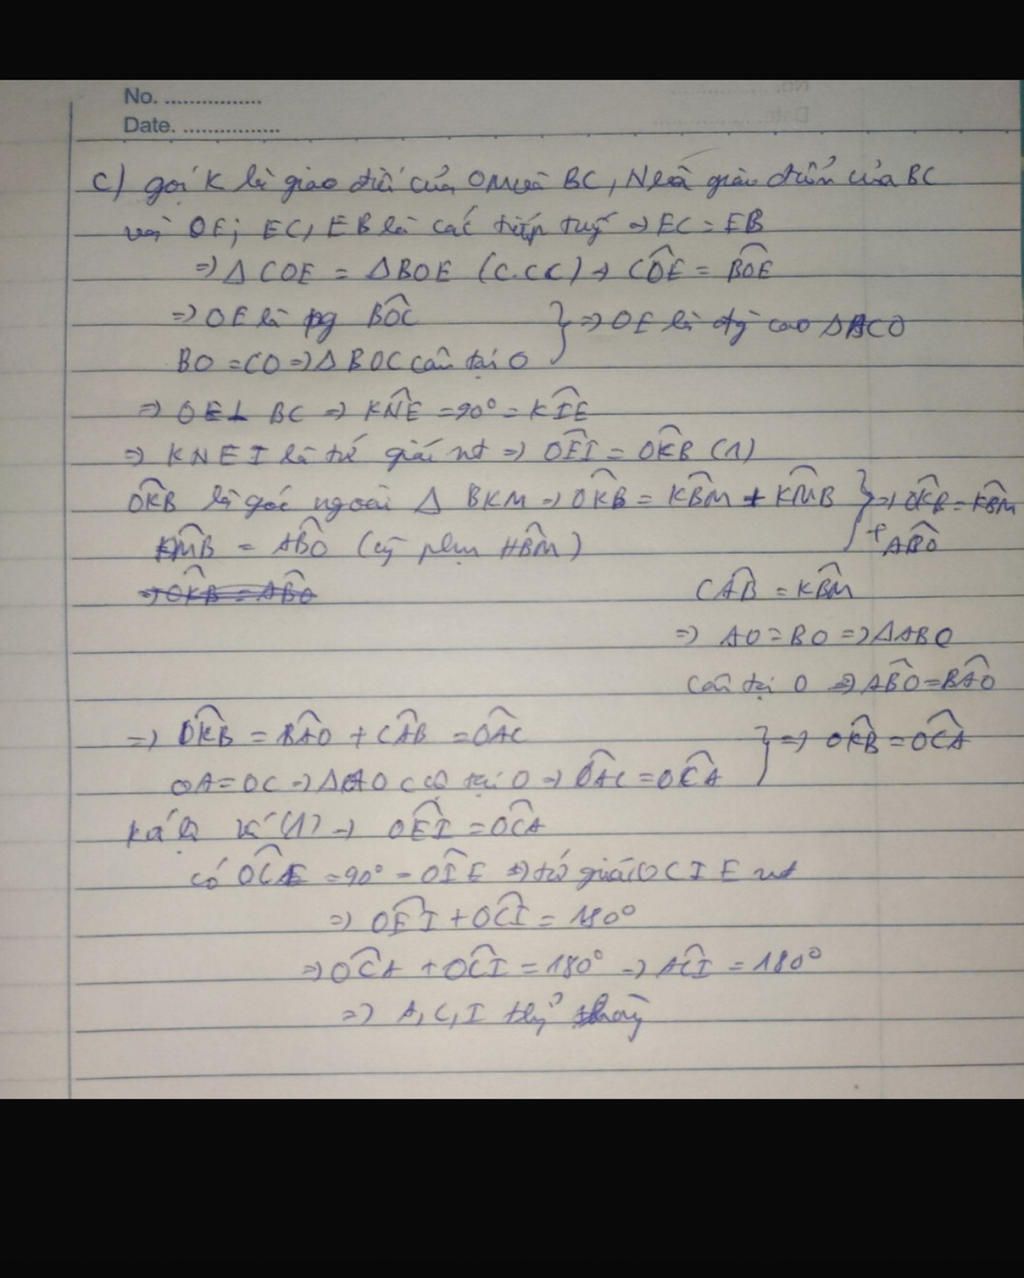 No. ................
Date. ................
c) gọi K là giao điểm của OM và BC, N là giao điểm của BC
với OE; EC, EB là các tiếp tuyến ⇒ EC = EB
⇒ ΔCOE = ΔBOE (c.c.c) ⇒ \widehat{COE} = \widehat{BOE}
⇒ OE là pg \widehat{BOC}
} ⇒ OE là đg cao ΔBCO
BO = CO ⇒ ΔBOC cân tại O
⇒ OE ⊥ BC ⇒ \widehat{KNE} = 90° = \widehat{KIE}
⇒ KNEI là tứ giác nt ⇒ \widehat{OEI} = \widehat{OKB} (1)
\widehat{OKB} là góc ngoài Δ BKM ⇒ \widehat{OKB} = \widehat{KBM} + \widehat{KMB} } ⇒ \widehat{OKB} = \widehat{KBM}
\widehat{KMB} = \widehat{ABO} (cg phụ \widehat{HBM}) + \widehat{ABO}
⇒ \widehat{OKB} = \widehat{ABO}
\widehat{CAB} = \widehat{KBM}
⇒ AO = BO ⇒ ΔABO
cân tại O ⇒ \widehat{ABO} = \widehat{BAO}
⇒ \widehat{OKB} = \widehat{BAO} + \widehat{CAB} = \widehat{OAC} } ⇒ \widehat{OKB} = \widehat{OCA}
OA = OC ⇒ ΔAOC cân tại O ⇒ \widehat{OAC} = \widehat{OCA}
(1) ⇒ \widehat{OEI} = \widehat{OCA}
có \widehat{OCE} = 90° = \widehat{OIE} ⇒ tứ giác OCIE nt
⇒ \widehat{OEI} + \widehat{OCI} = 180°
⇒ \widehat{OCA} + \widehat{OCI} = 180° ⇒ \widehat{ACI} = 180°
⇒ A, C, I thẳng hàng